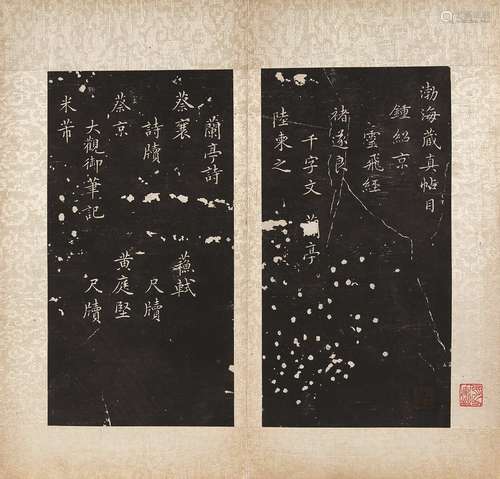 渤海藏真帖目
鍾紹京
靈飛經
褚遂良
千字文 蘭亭
陸柬之
蘭亭詩
蔡襄 蘇軾
詩牘 尺牘
蔡京 黃庭堅
大觀御筆記 尺牘
米芾